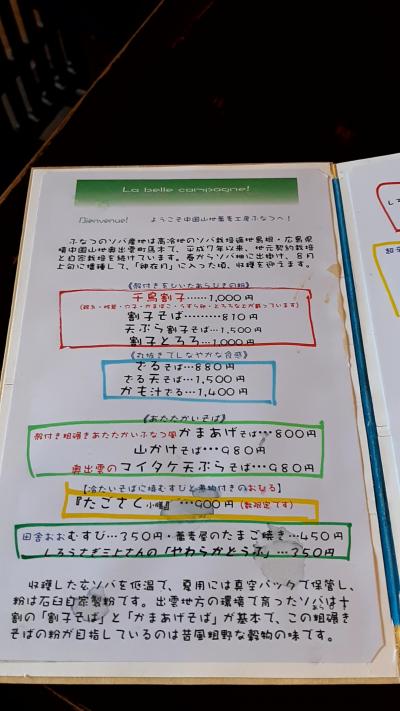 La belle campagne!
Bienvenue! ようこそ中国山地蕎麦工房ふなつへ!
ふなつのソバ産地は高冷地のソバ栽培適地島根・広島県
境中国山地奥出雲町馬木で、平成7年以来、地元契約栽培
と自家栽培を続けています。春からソバ畑に出掛け、8月
上旬に播種して、「神在月」に入った頃、収穫を迎えます。
《殻付きをひいたあらびきの粉》
千鳥割子……1,000円
割子そば………810円
天ぷら割子そば…1,500円
割子とろろ…1,000円
《丸抜きでしなやかな食感》
ざるそば…880円
ざる天そば…1,500円
かも汁ざる…1,400円
《あたたかいそば》
殻付き粗碾きあたたかいふなつ風かまあげそば…800円
山かけそば…980円
奥出雲のコイタケ天ぷらそば…980円
【冷たいそばに塩むすびと煮物付きのおひる】
『たごさく小膳』…900円(数限定です)
田舎おおむすび…350円・蕎麦屋のたまご焼き…450円
しろうさぎ三上さんの「やわらかとうふ」…350円
収穫した玄ソバを低温で、夏用には真空パックで保管し、
粉は石臼自家製粉です。出雲地方の環境で育ったソバは十
割の「割子そば」と「かまあげそば」が基本で、この粗碾き
そばの粉が目指しているのは昔風粗野な穀物の味です。